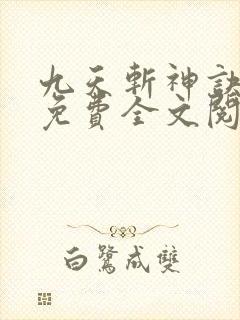 九天斬神訣
免費全文閱
白鷺成雙